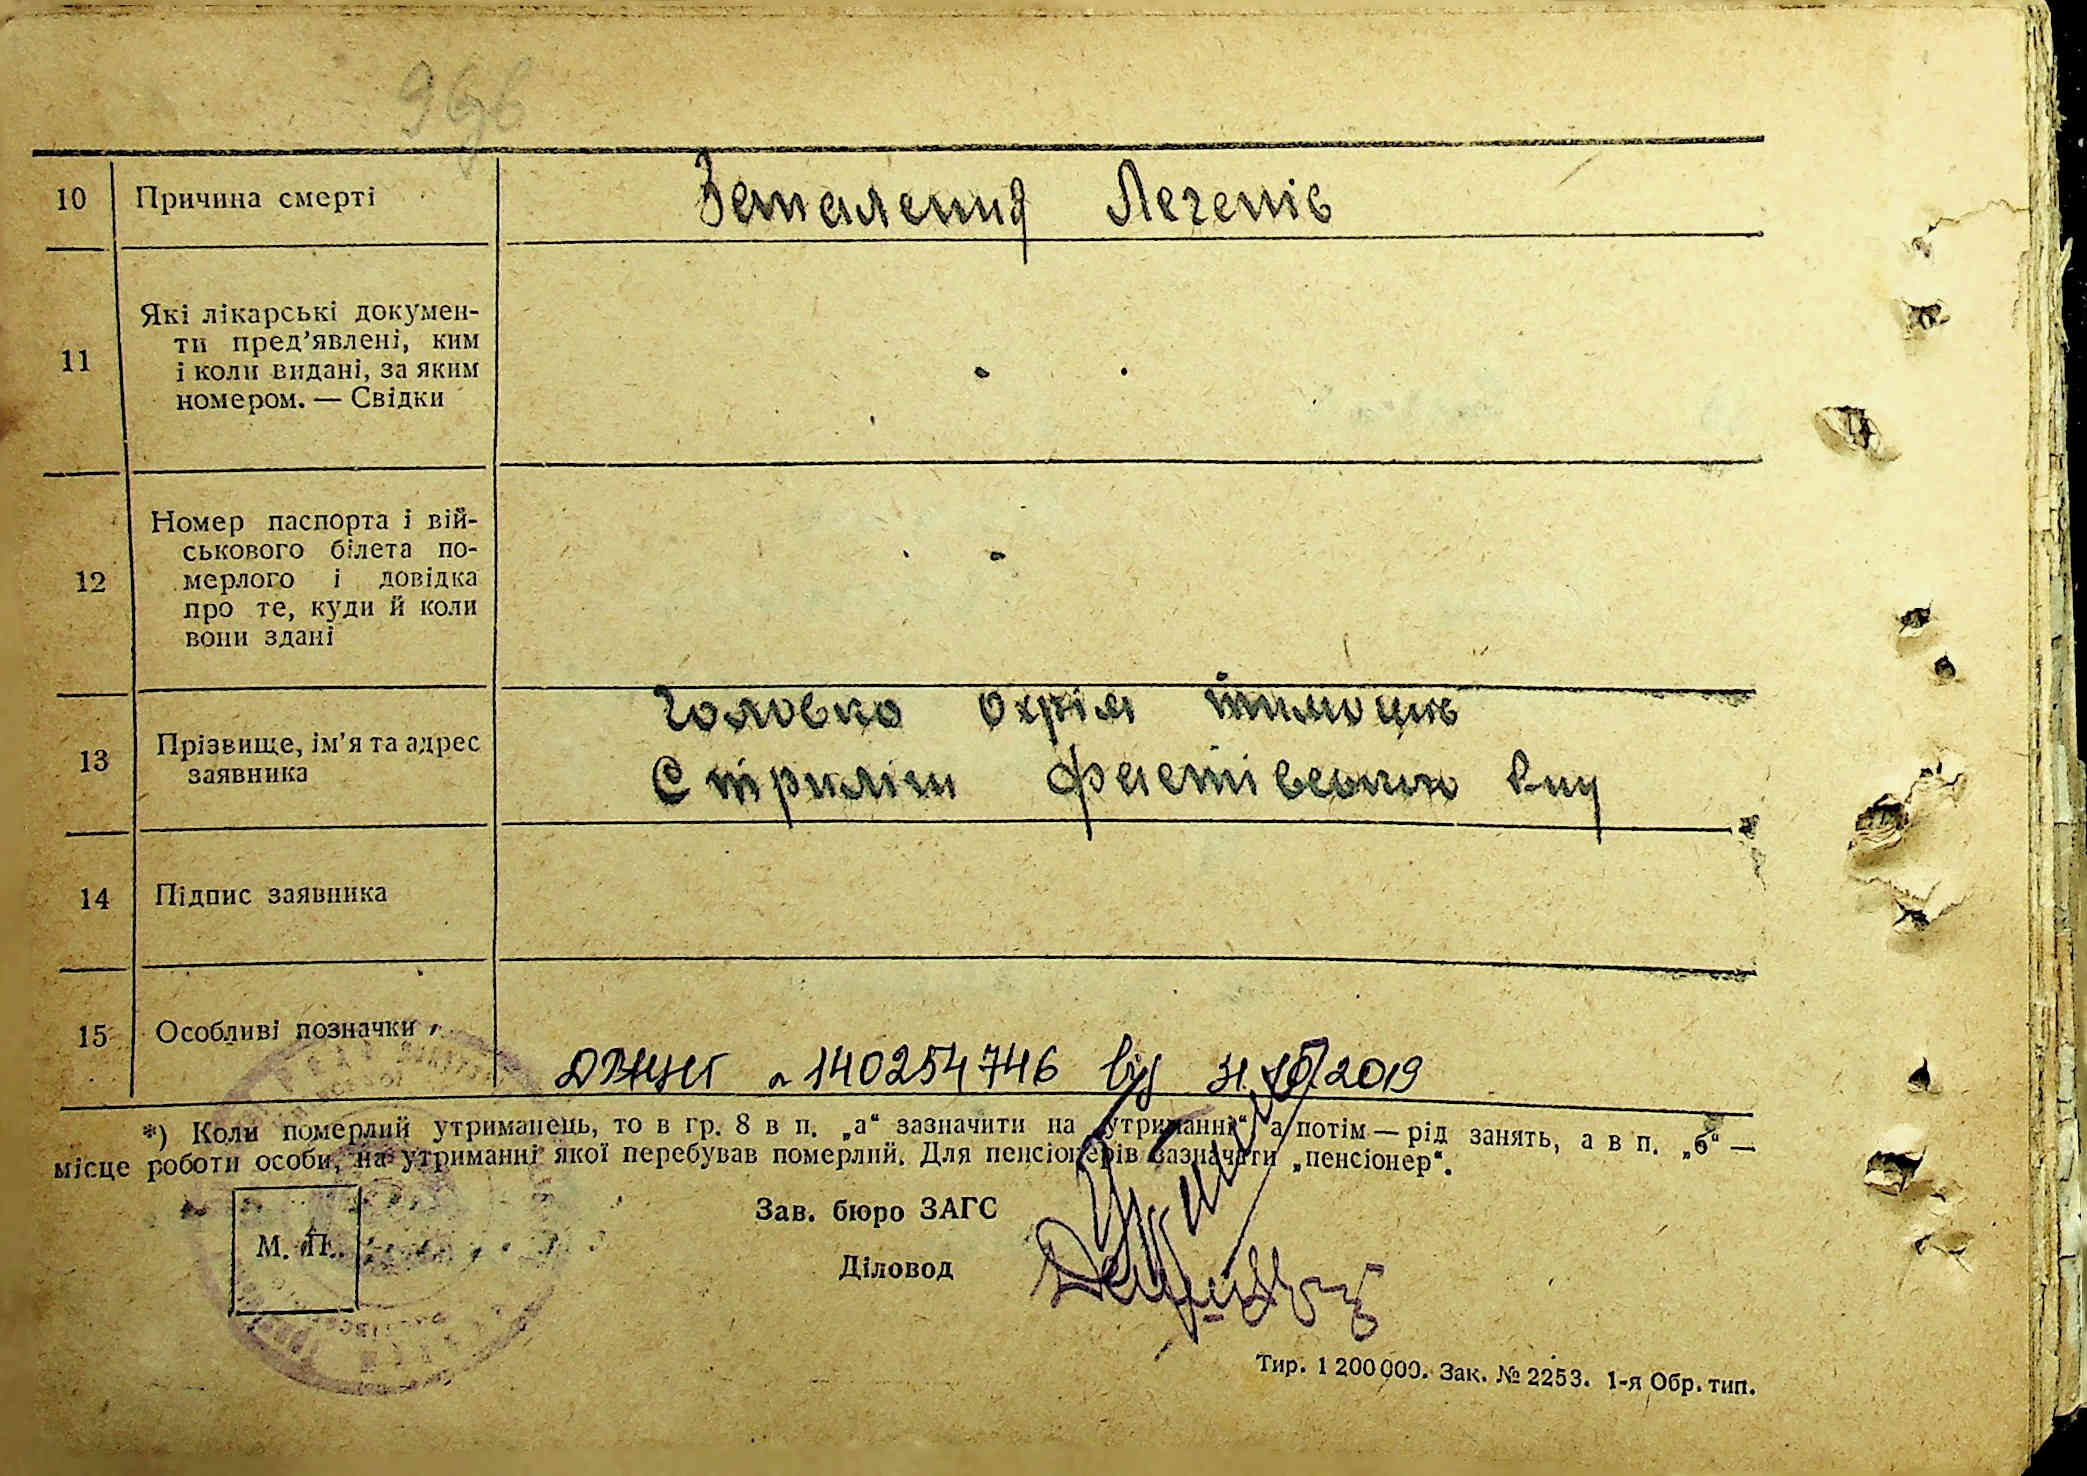 966
10 Причина смерті Запалення Легенів
11 Які лікарські докумен-
ти пред’явлені, ким
і коли видані, за яким
номером. — Свідки
12 Номер паспорта і вій-
ськового білета по-
мерлого і довідка
про те, куди й коли
вони здані
Головко Охрім тимоше
13 Прізвище, ім’я та адрес
заявника
Фастівського
14 Підпис заявника
15 Особливі позначки
140254746 від 2019
*) Коли померлий утриманець, то в гр. 8 в п. „а“ зазначити на „утриманні“ а потім — рід занять, а в п. „б“ —
місце роботи особи, на утриманні якої перебував померлий. Для пенсіонерів зазначати „пенсіонер“.
Зав. бюро ЗАГС
М. П.
Діловод
Тир. 1 200 000. Зак. № 2253. 1-я Обр. тип.